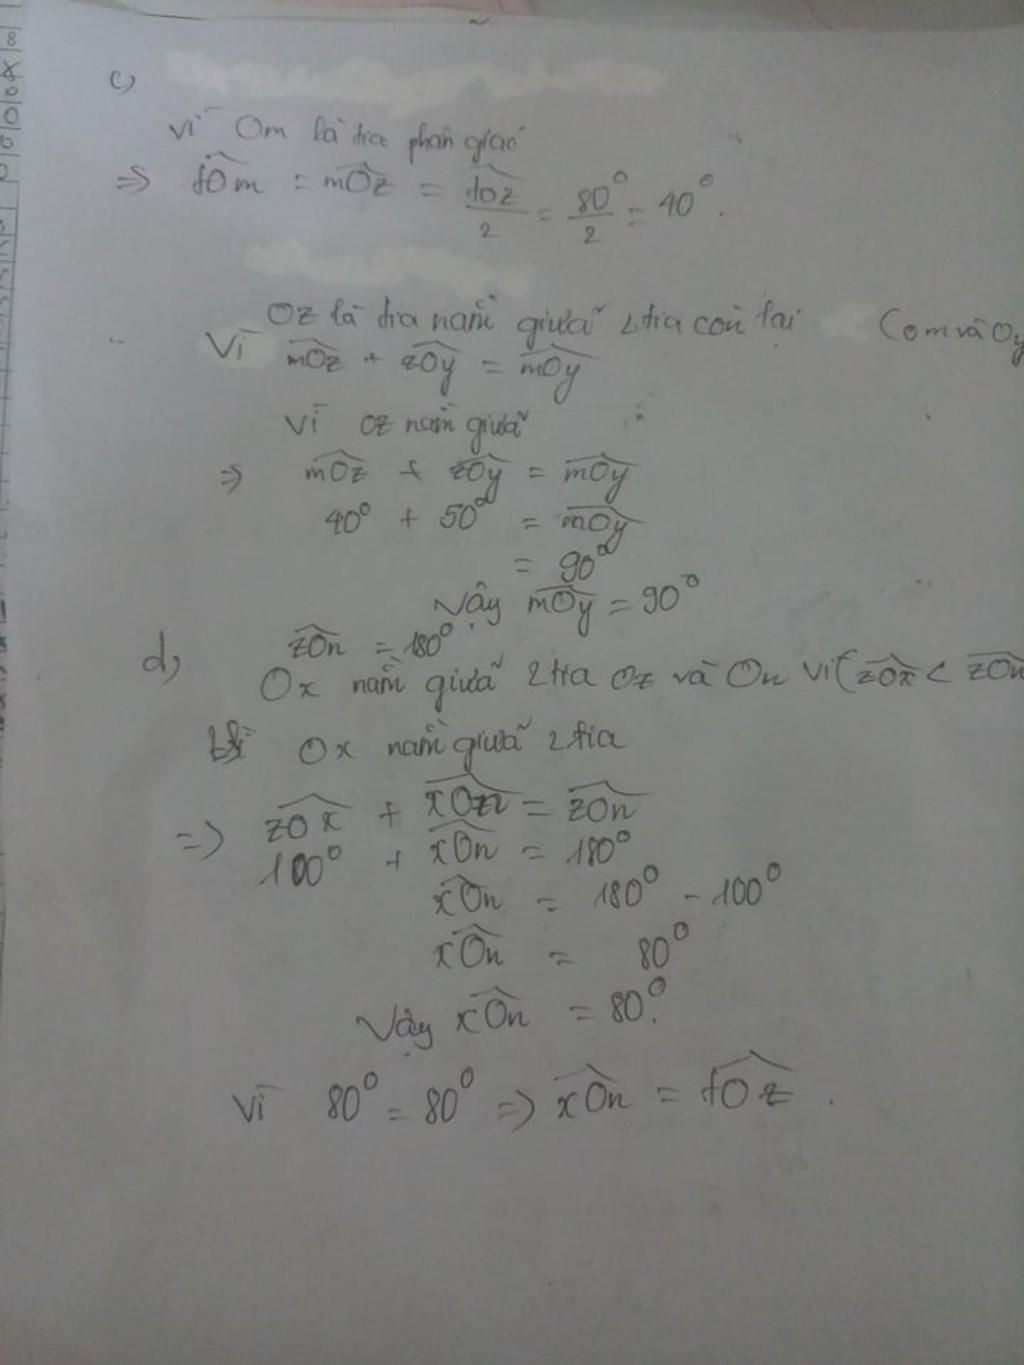 c)
Vì Om là tia phân giác
=> tOm = mOz = tOz/2 = 80°/2 = 40°.
Oz là tia nằm giữa 2 tia còn lại (Om và Oy
Vì mOz + zOy = mOy
Vì Oz nằm giữa
=> mOz + zOy = mOy
40° + 50° = mOy
= 90°
Vậy mOy = 90°
d) zOn = 180°
Ox nằm giữa 2 tia Oz và On vì (zOx < zOn
Ox nằm giữa 2 tia
=> zOx + xOn = zOn
100° + xOn = 180°
xOn = 180° - 100°
xOn = 80°
Vậy xOn = 80°.
Vì 80° = 80° => xOn = tOz.